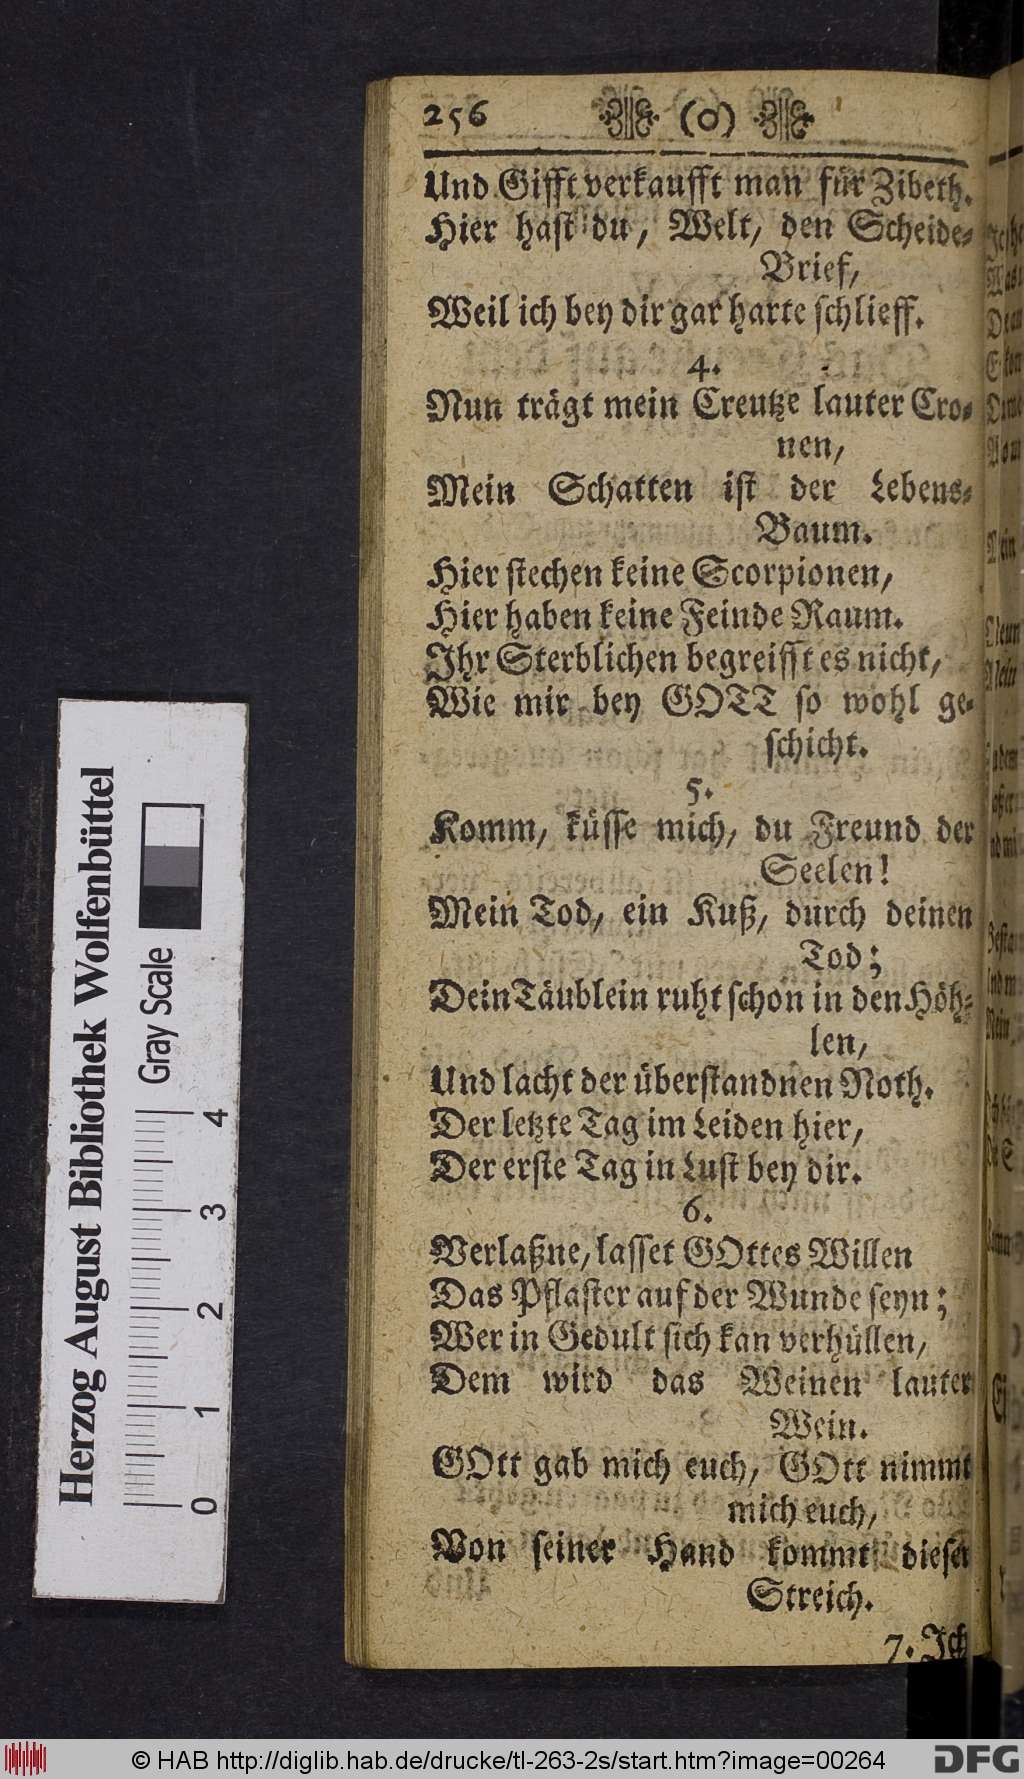 256 (o)
Und Gifft verkaufft man für Zibeth.
Hier hast du, Welt, den Scheide-
Brief,
Weil ich bey dir gar harte schlieff.
4.
Nun trägt mein Creutze lauter Cro-
nen,
Mein Schatten ist der Lebens-
Baum.
Hier stechen keine Scorpionen,
Hier haben keine Feinde Raum.
Ihr Sterblichen begreifft es nicht,
Wie mir bey GOTT so wohl ge-
schicht.
5.
Komm, küsse mich, du Freund der
Seelen!
Mein Tod, ein Kuß, durch deinen
Tod;
Dein Täublein ruht schon in den Höh-
len,
Und lacht der überstandnen Noth.
Der letzte Tag im Leiden hier,
Der erste Tag in Lust bey dir.
6.
Verlaßne, lasset GOttes Willen
Das Pflaster auf der Wunde seyn;
Wer in Gedult sich kan verhüllen,
Dem wird das Weinen lauter
Wein.
GOtt gab mich euch, GOtt nimmt
mich euch,
Von seiner Hand kommt dieser
Streich.
7. Ich
Herzog August Bibliothek Wolfenbüttel
Gray Scale
0 1 2 3 4
© HAB http://diglib.hab.de/drucke/tl-263-2s/start.htm?image=00264
DFG